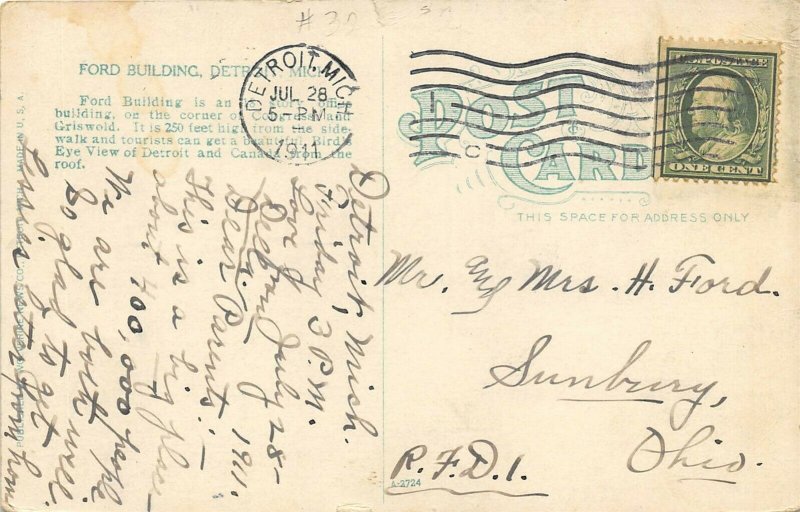 # 30
FORD BUILDING, DETROIT, MICH.
Ford Building is an story office
building, on the corner of Congress and
Griswold. It is 250 feet high from the side-
walk and tourists can get a beautiful Bird's
Eye View of Detroit and Canada from the
roof.
DETROIT, MICH.
JUL 28
5- PM
1911
POST
CARD
U.S. POSTAGE
ONE CENT
THIS SPACE FOR ADDRESS ONLY
MADE IN U.S.A.
Detroit, Mich.
Friday 3 P.M.
July 28 - 1911.
Dear Parents:
This is a big place -
about 400,000 people
We are both well.
So glad to get
from home
Mr. and Mrs. H. Ford.
Sunbury,
Ohio.
R.F.D. 1.
A-2724